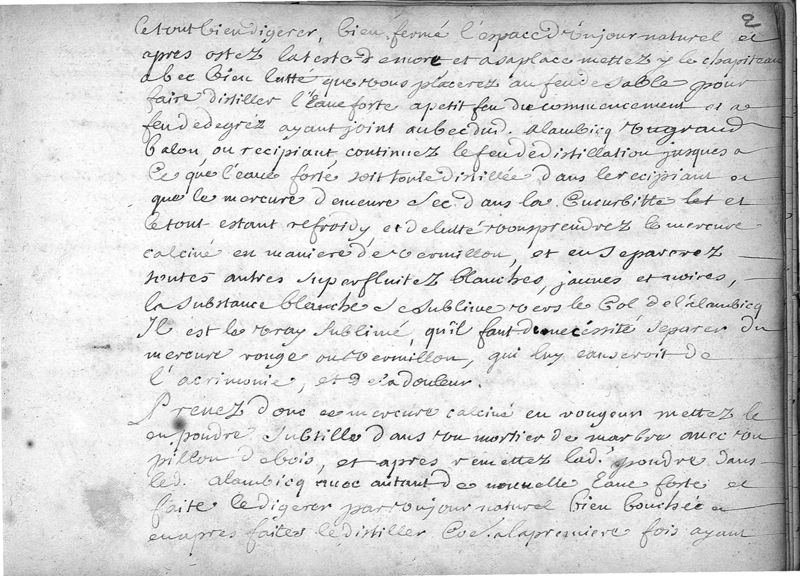 2
Le tout bien digerer, bien fermé l'espace d'un jour naturel et
apres ostez la teste d'e more et a sa place mettez y le chapiteau
abec bien lutté que vous placerez au feu de sable pour
faire distiller l'eaue forte a petit feu du commencement et a
feu de degrez ayant joint au bec dud. alambicq un grand
balon, ou recipiant, continuez le feu de distillation jusques a
Ce que l'eaue forte soit toute distillée dans le recipiant et
que le mercure demeure sec dans la Cucurbitte et
le tout estant refroidy et delutté vous prendrez le mercure
calciné en maniere de vermillon, et en separerez
toutes autres superfluitez blanches, jaunes et noires,
la substance blanche se sublime vers le Col de l'alambicq
Il est le vray sublimé, qu'il faut de necessité separer du
mercure rouge ou vermillon, qui luy causeroit de
l'acrimonie, et de la douleur.
Prenez donc ce mercure calciné en rougeur mettez le
en poudre subtille dans un mortier de marbre avec un
pillon de bois, et apres remettez lad. poudre dans
led. alambicq avec autant de nouvelle eaue forte et
faite le digerer par un jour naturel bien bouchée et
en apres faites le distiller Coe. a la premiere fois ayant